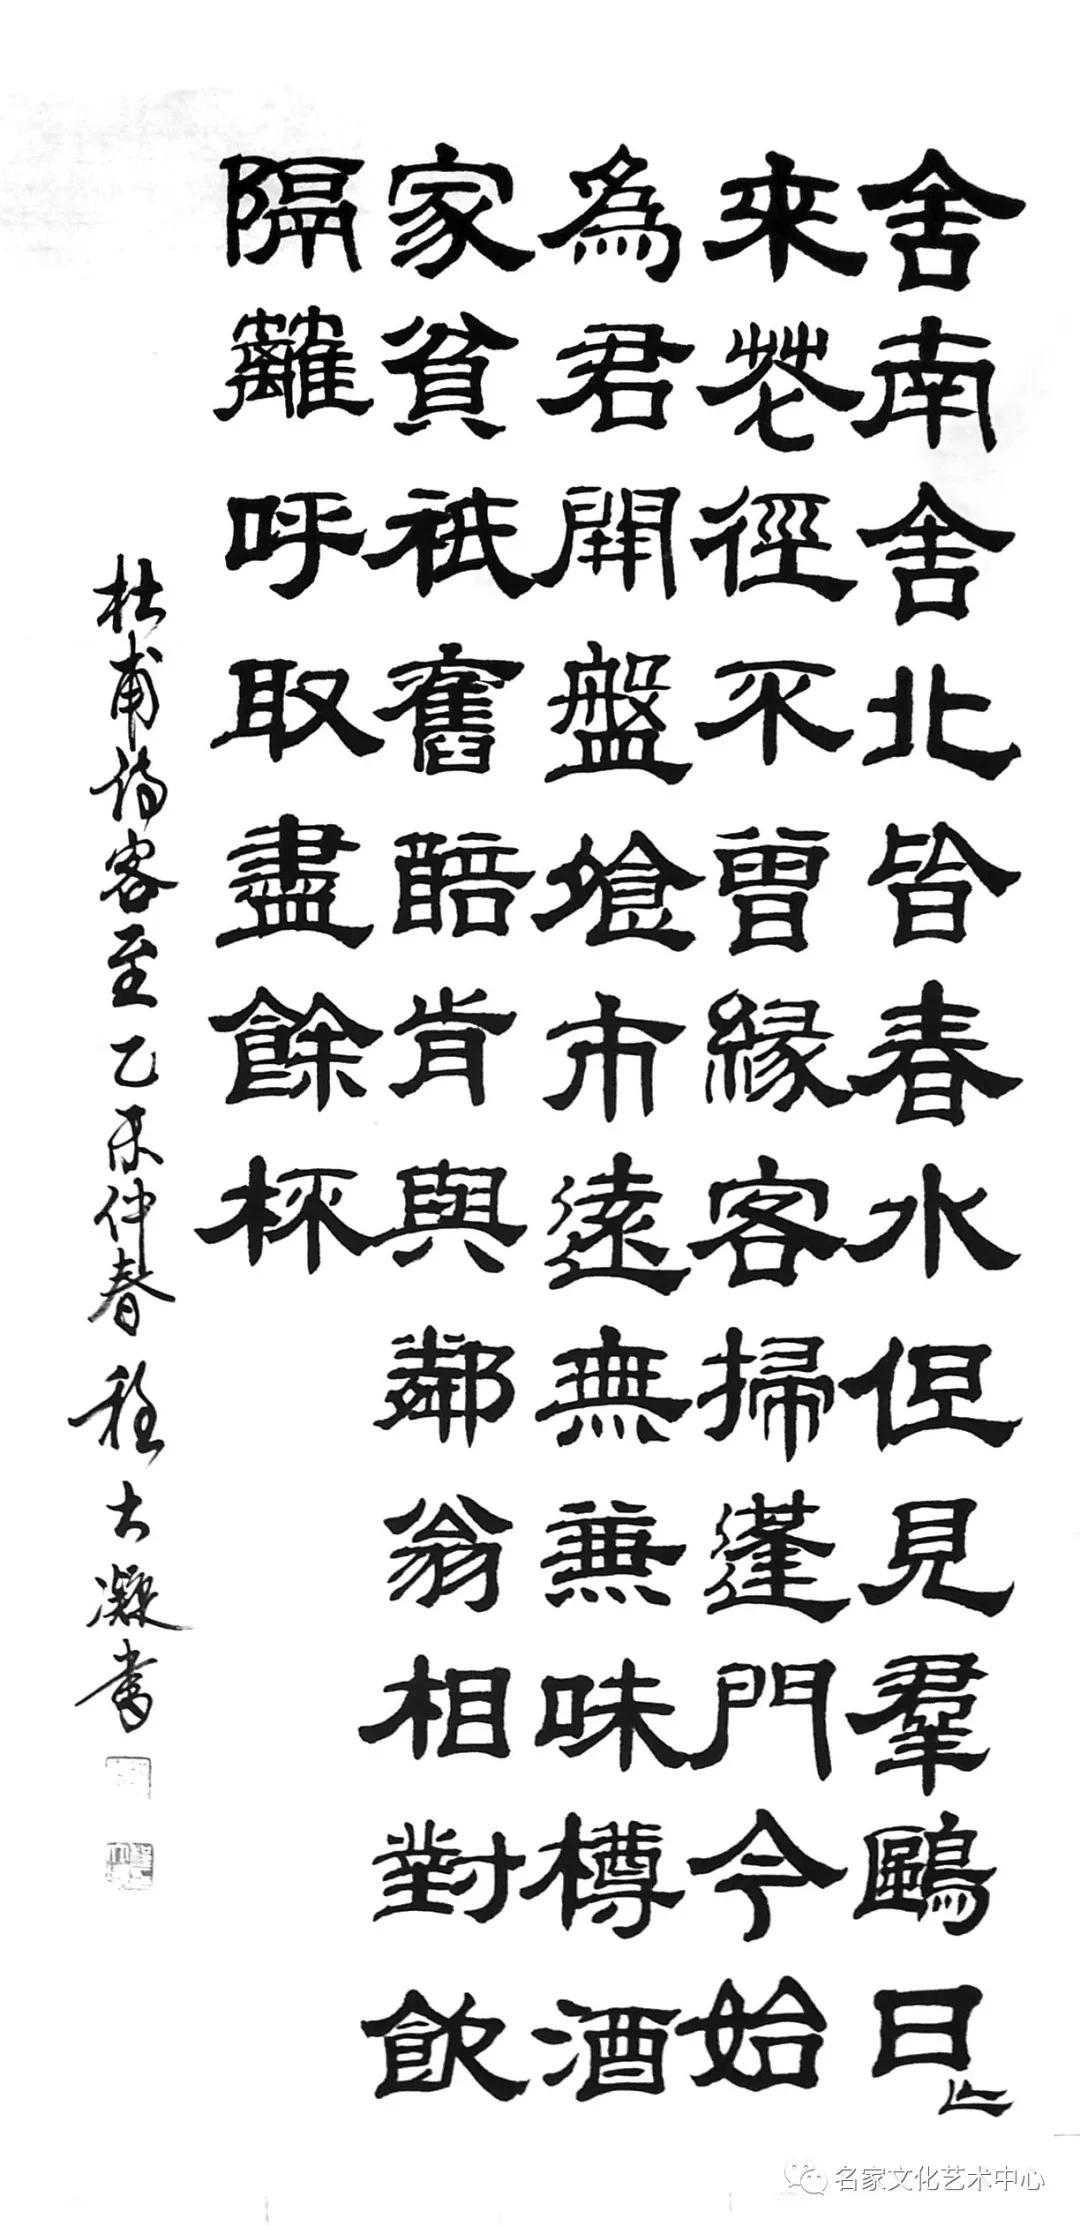 舍南舍北皆春水但見羣鷗日〻
來花徑不曾緣客掃蓬門今始
為君開盤飱市遠無兼味樽酒
家貧祇舊醅肯與鄰翁相對飲
隔籬呼取盡餘杯
杜甫詩客至乙未仲春程大凝書
名家文化艺术中心